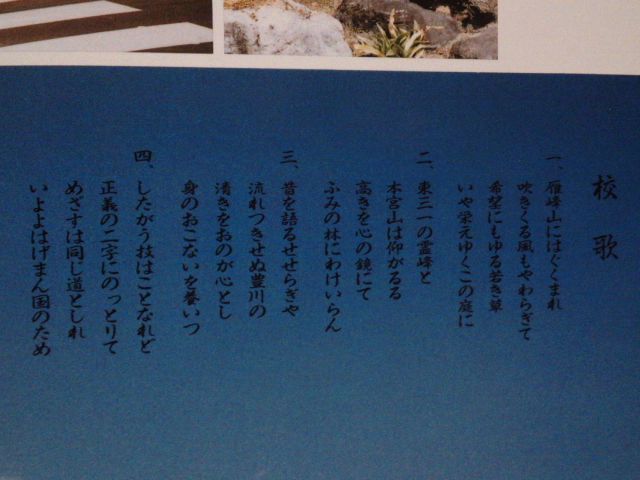 校歌
一、雁峰山にはぐくまれ
吹きくる風もやわらぎて
希望にもゆる若き草
いや栄えゆくこの庭に
二、東三一の霊峰と
本宮山は仰がるる
高きを心の鏡にて
ふみの林にわけいらん
三、昔を語るせせらぎや
流れつきせぬ豊川の
清きをおのが心とし
身のおこないを養いつ
四、したがう技はことなれど
正義の二字にのっとりて
めざすは同じ道としれ
いよよはげまん国のため